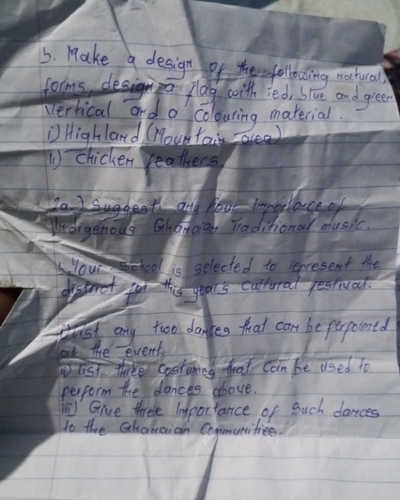 b. Make a design of the following natural
forms, design a flag with red, blue and green
vertical and a colouring material.
i) Highland (Mountain area)
ii) Chicken feathers
2a.) Suggest any four Importance of
Indigenous Ghanaian Traditional music.
Your school is selected to represent the
district for this year's cultural festival.
i) List any two dances that can be performed
at the event.
ii) List three costumes that can be used to
perform the dances above.
iii) Give three Importance of such dances
to the Ghanaian Communities.